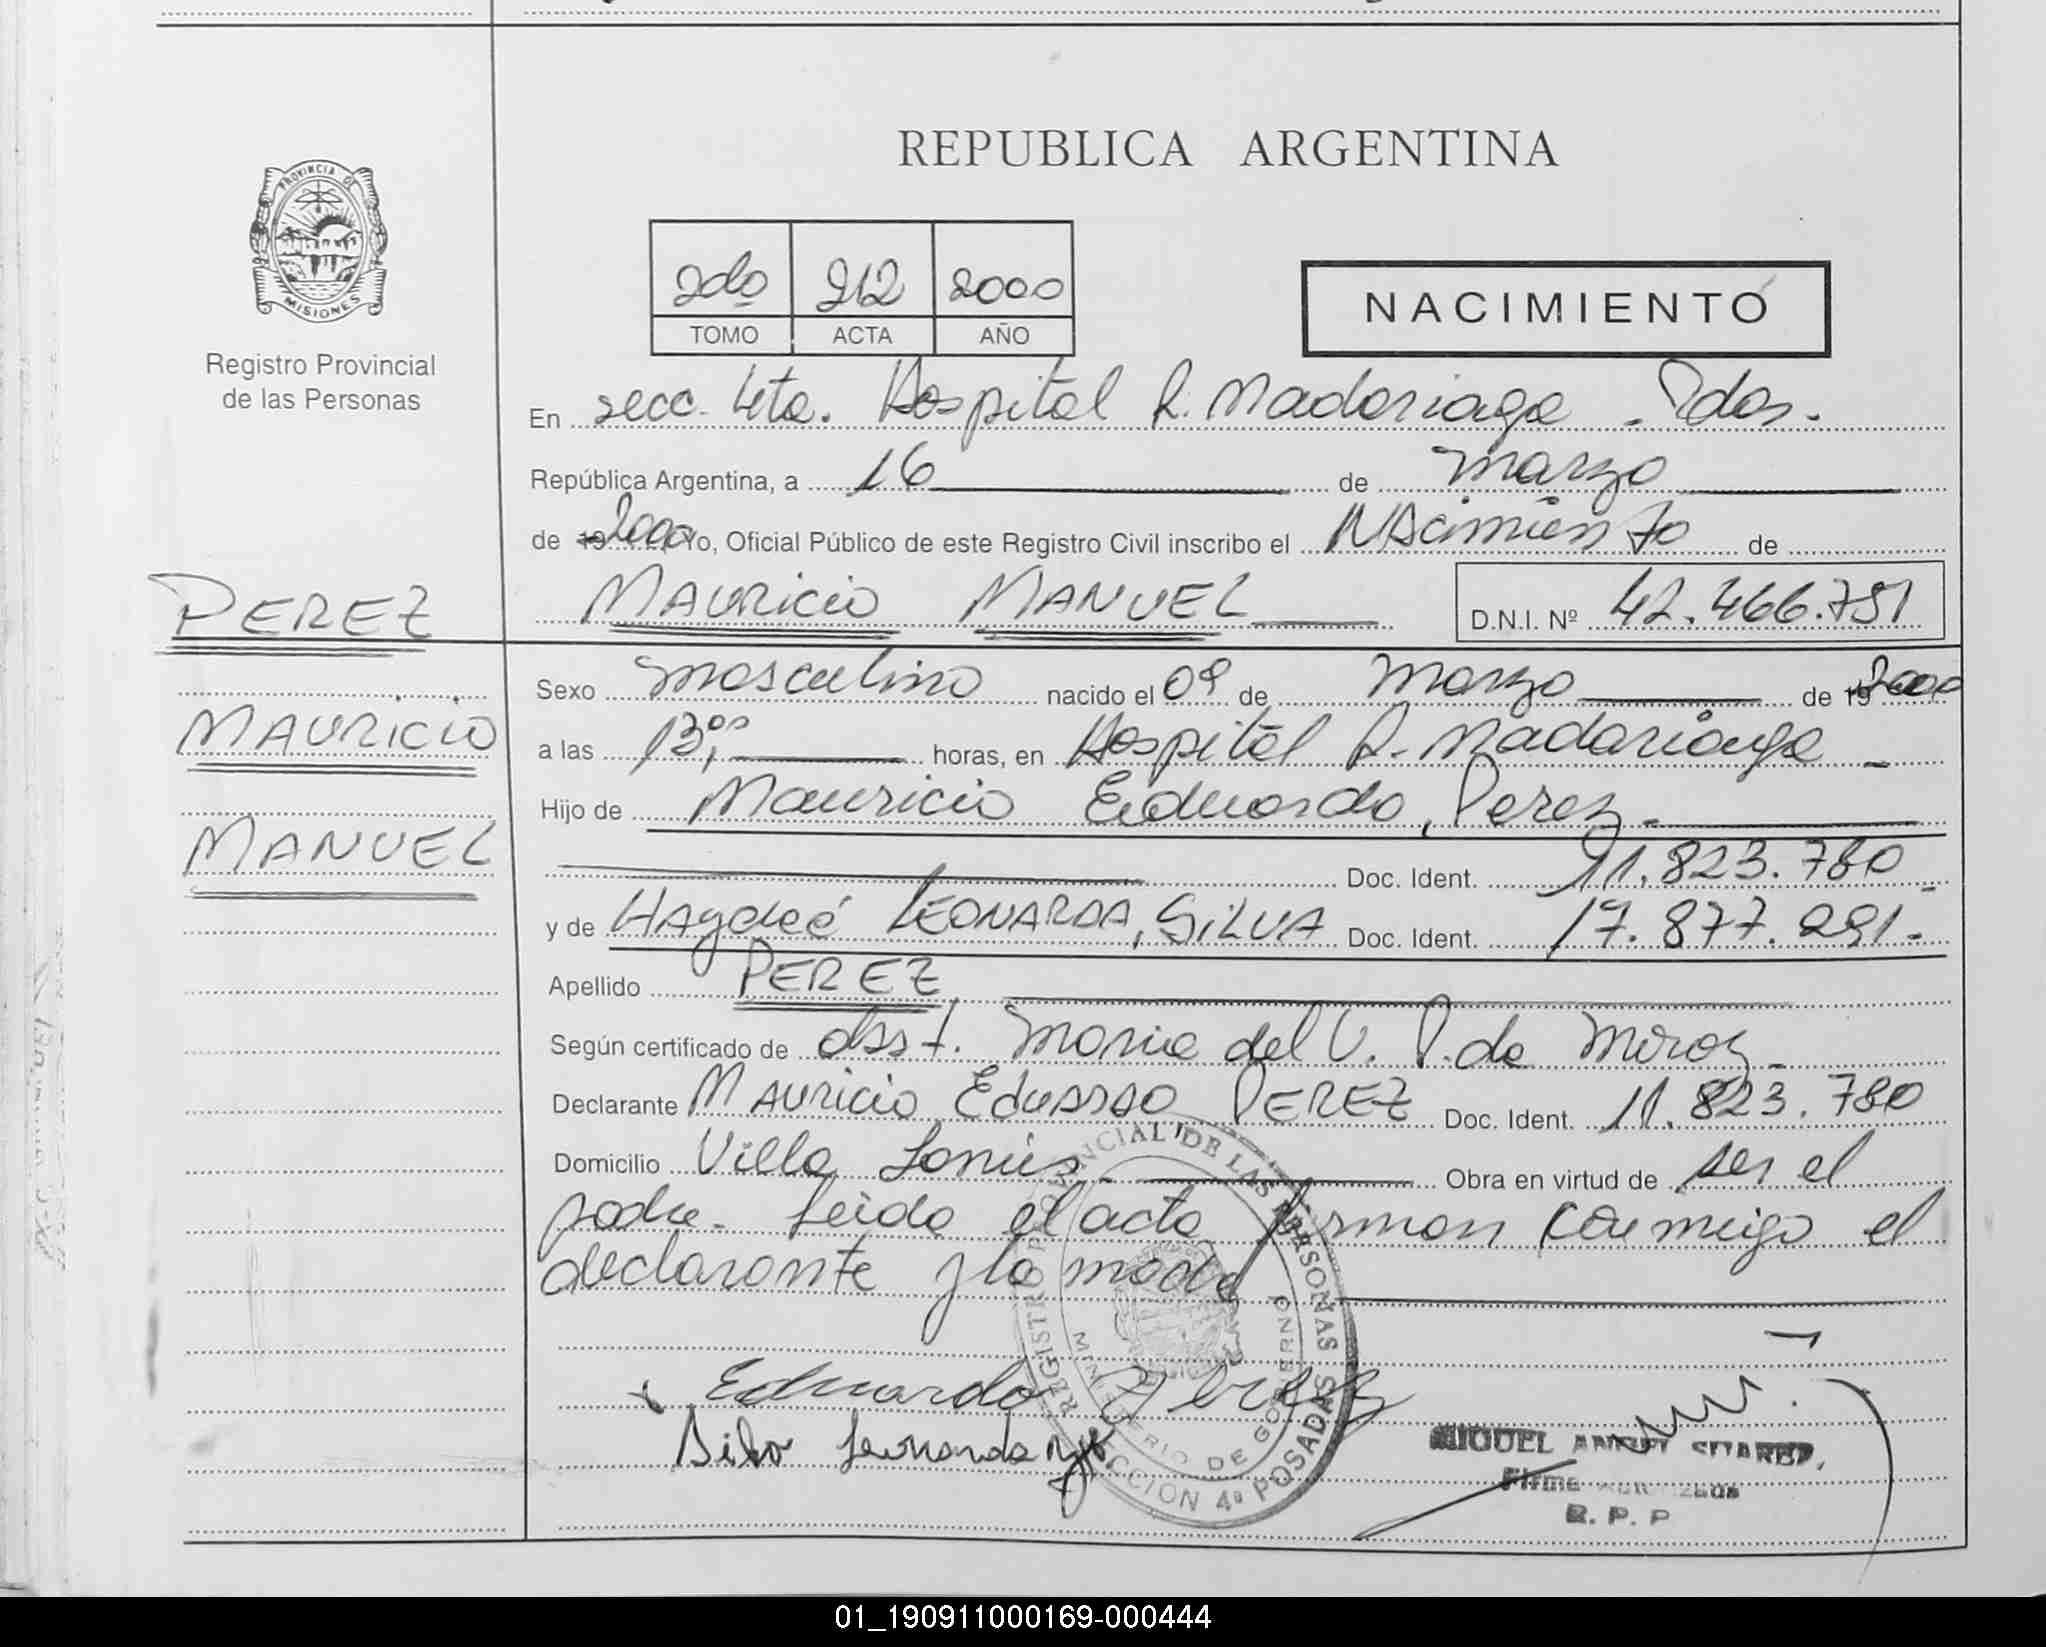 REPUBLICA ARGENTINA
PROVINCIA DE
MISIONES
Registro Provincial
de las Personas
2do 212 2000
TOMO ACTA AÑO
NACIMIENTO
En secc. 4ta. Hospital R. Madariaga - Pdas.
República Argentina, a 16 de marzo
de 19 2000 Yo, Oficial Público de este Registro Civil inscribo el NAcimiento de
MAURICIO MANUEL D.N.I. Nº 42.466.751
PEREZ
MAURICIO
MANUEL
Sexo masculino nacido el 09 de marzo de 19 2000
a las 13,00 horas, en Hospital R. Madariaga -
Hijo de Mauricio Eduardo, Perez -
Doc. Ident. 11.823.780
y de HAydeé LEONARDA, SiLVA Doc. Ident. 17.877.291.
Apellido PEREZ
Según certificado de obst. Maria del V. P. de
Declarante MAURICIO EduARDO PEREZ Doc. Ident. 11.823.780
Domicilio Villa Lanús. Obra en virtud de ser el
padre. Leida el acta firman conmigo el
declarante y la madre
REGISTRO PROVINCIAL DE LAS PERSONAS
MINISTERIO DE GOBIERNO
SECCION 4ª POSADAS
Eduardo Perez
Silva Leonarda
MIGUEL ANGEL SUAREZ
Firma Autorizada
R. P. P
01_190911000169-000444